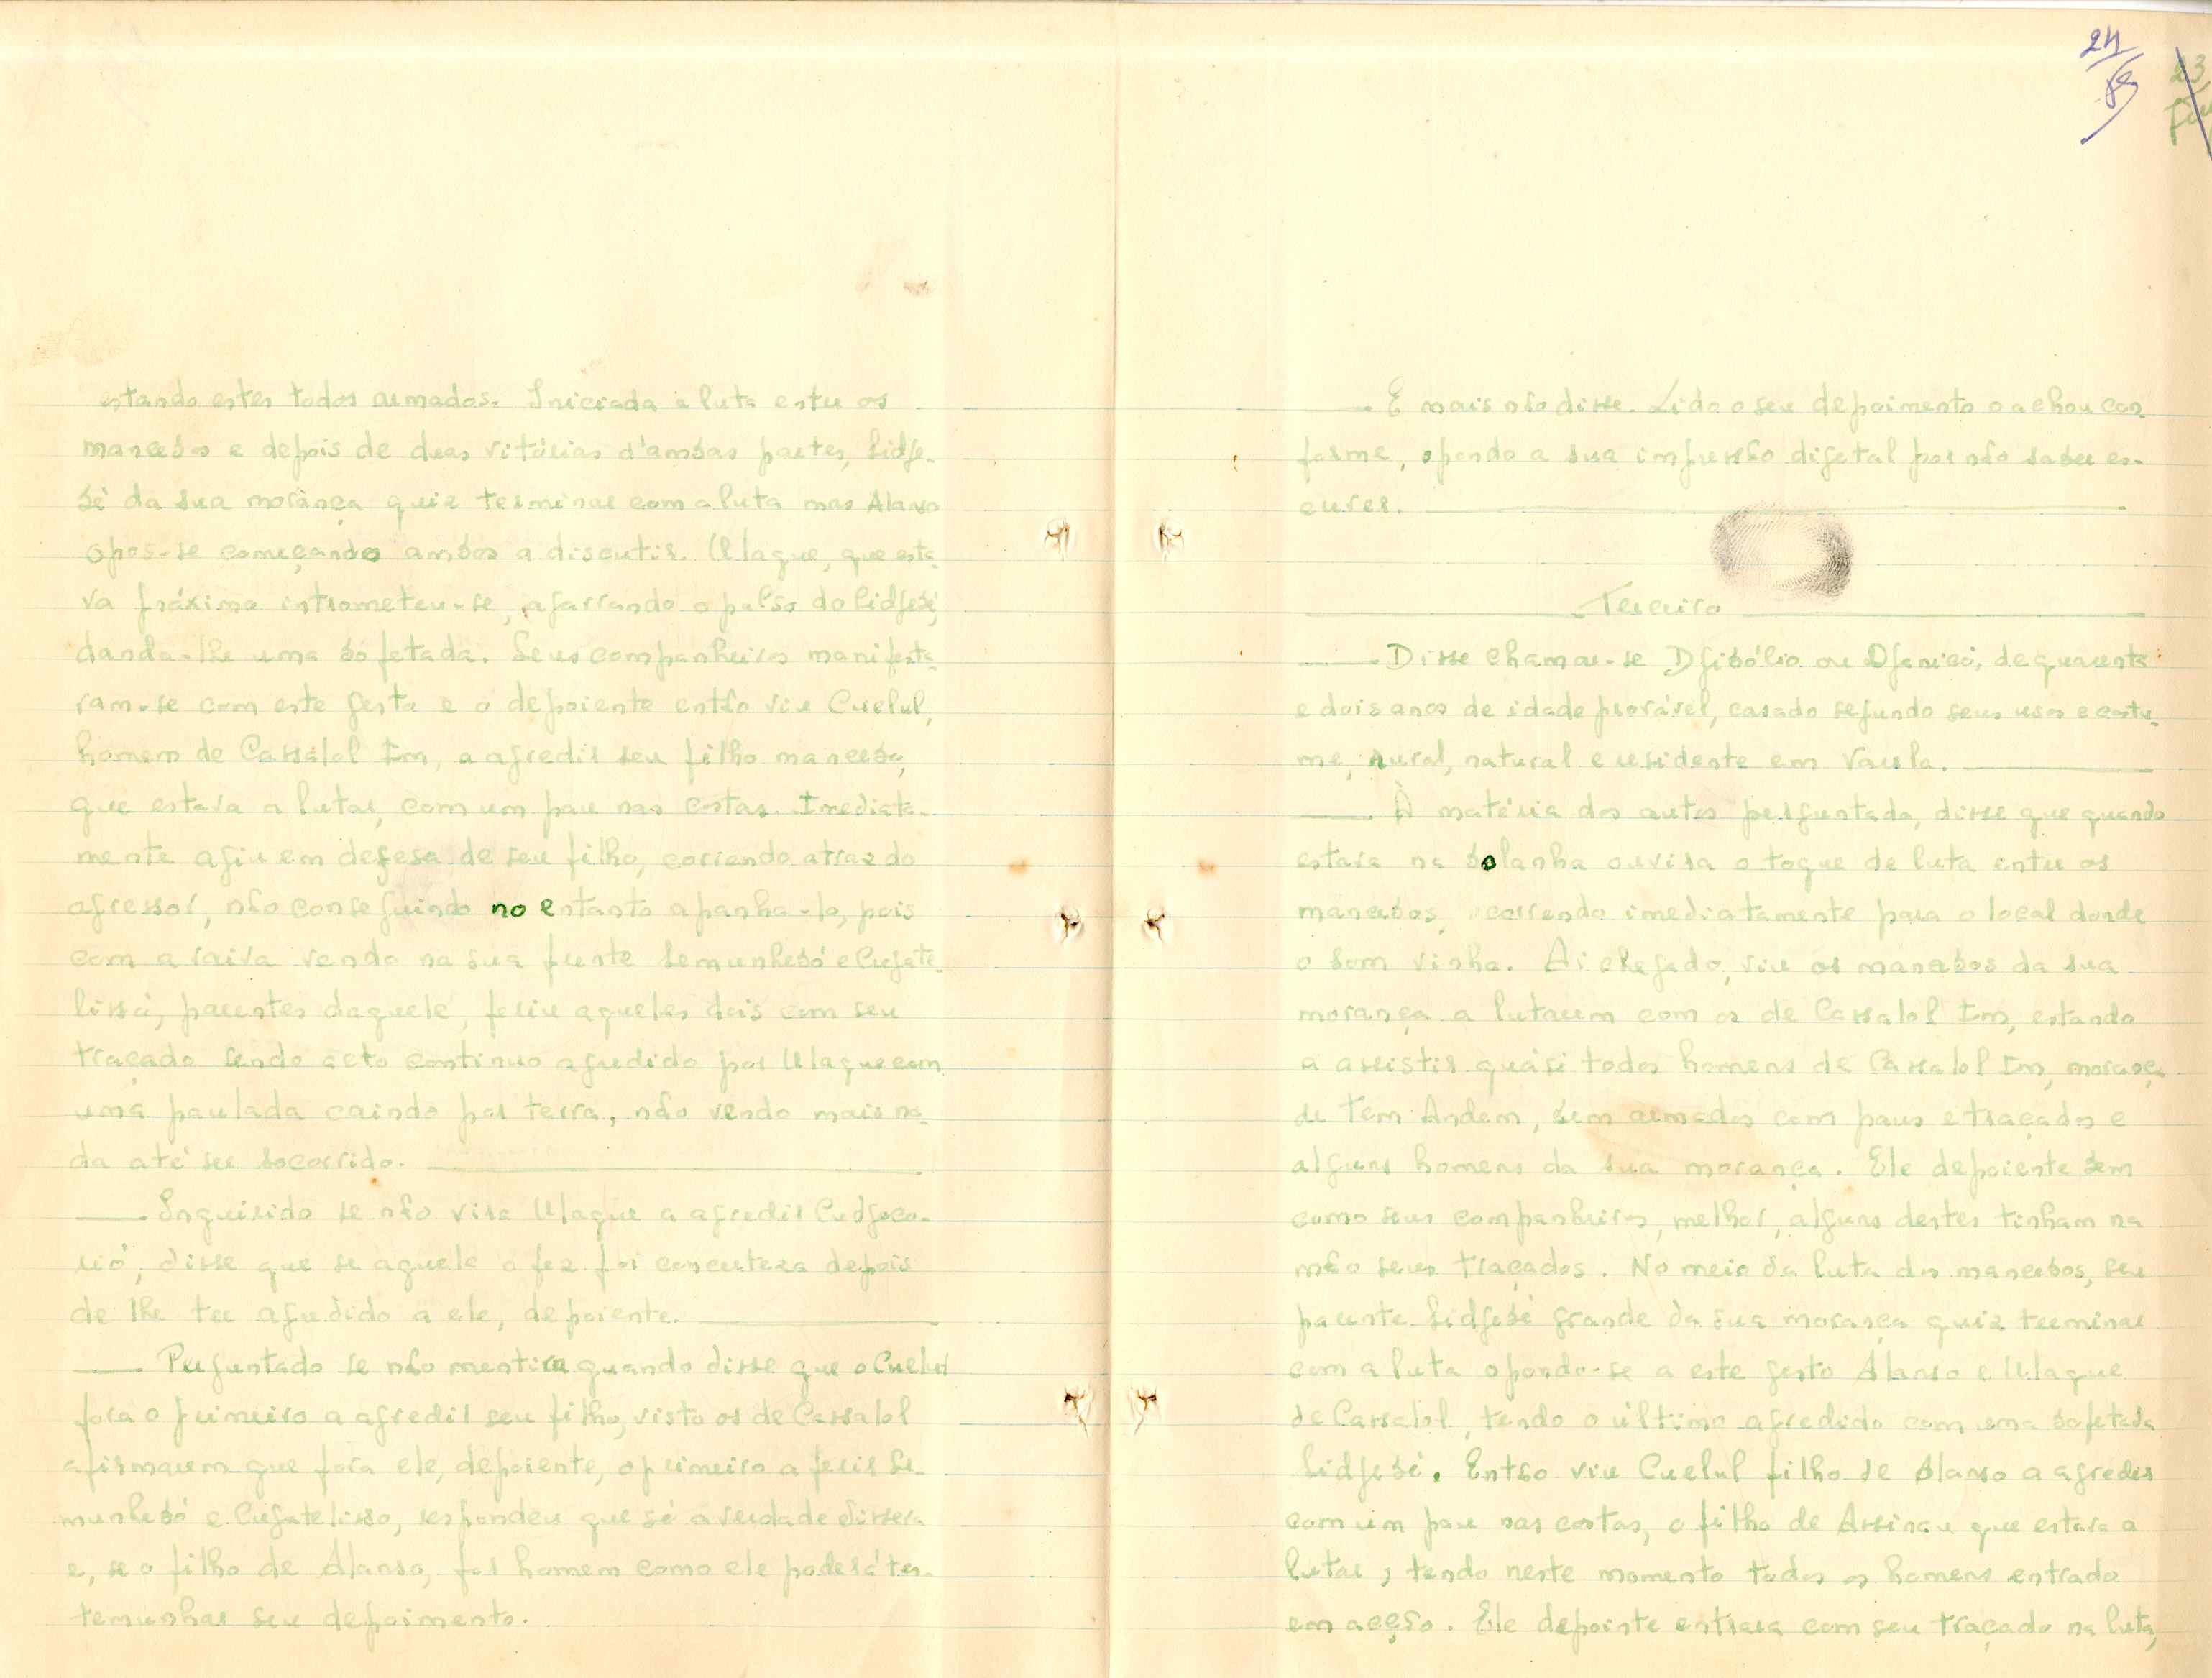 estando estes todos armados. Iniciada a luta entre os
mancebos e depois de duas vitórias d'ambas partes, Lidge-
bé da sua morança quiz terminar com a luta mas Alanso
opos-se começando ambos a discutir. Ulaque, que esta-
va próximo intrometeu-se, agarrando o pulso do Lidgebé,
dando-lhe uma bofetada. Seus companheiros manifesta-
ram-se com este gesto e o depoiente então viu Cuelul,
homem de Cassalol Im, a agredir seu filho mancebo,
que estava a lutar, com um pau nas costas. Imediata-
mente agiu em defesa de seu filho, correndo atraz do
agressor, não conseguindo no entanto apanha-lo, pois
com a raiva vendo na sua frente Semunhebó e Cufate-
lissó, parentes daquele, feriu aqueles dois com seu
traçado sendo acto continuo agredido por Ulaque com
uma paulada caindo por terra, não vendo mais na-
da até ser socorrido.
Inquirido se não vira Ulaque a agredir Cudjoco-
rió, disse que se aquele o fez foi concerteza depois
de lhe ter agredido a ele, depoiente.
Perguntado se não mentira quando disse que o Cuelul
fora o primeiro a agredir seu filho, visto os de Cassalol
afirmarem que fora ele, depoiente, o primeiro a ferir Se-
munhebó e Cufatelisso, respondeu que só a verdade dissera
e, se o filho de Alanso, for homem como ele poderá tes-
temunhar seu depoimento.
24
23
E mais não disse. Lido o seu depoimento o achou con-
forme, opondo a sua impressão digetal por não saber es-
crever.
Terceiro
Disse chamar-se Dgibólio ou Dgenicó, de quarenta
e dois anos de idade provável, casado segundo seus usos e costu-
me, rural, natural e residente em Varela.
À matéria dos autos perguntado, disse que quando
estava na bolanha ouvira o toque de luta entre os
mancebos, ocorrendo imediatamente para o local donde
o som vinha. Ai chegado, viu os mancebos da sua
morança a lutarem com os de Cassalol Im, estando
a assistir quási todos homens de Cassalol Im, morança
de Tem Andem, bem armados com paus e traçados e
alguns homens da sua morança. Ele depoiente bem
como seus companheiros, melhor, alguns destes tinham na
mão seus traçados. No meio da luta dos mancebos, seu
parente Lidgebé grande da sua morança quiz terminar
com a luta opondo-se a este gesto Alanso e Ulaque
de Cassalol, tendo o último agredido com uma bofetada
Lidgebé. Então viu Cuelul filho de Alanso a agredir
com um pau nas costas, o filho de Assinau que estava a
lutar, tendo neste momento todos os homens entrado
em acção. Ele depointe entrara com seu traçado na luta,